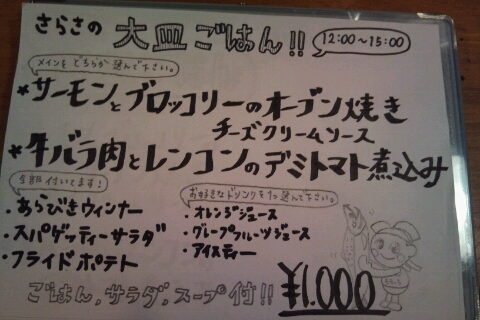 さらさの 大皿ごはん!! 12:00~15:00
メインをどちらか選んで下さい。
*サーモンとブロッコリーのオーブン焼き
チーズクリームソース
*牛バラ肉とレンコンのデミトマト煮込み
全部付いてます!
・あらびきウィンナー
・スパゲッティーサラダ
・フライドポテト
お好きなドリンクを1つ選んで下さい。
・オレンジジュース
・グレープフルーツジュース
・アイスティー
ごはん,サラダ,スープ付!!
¥1,000